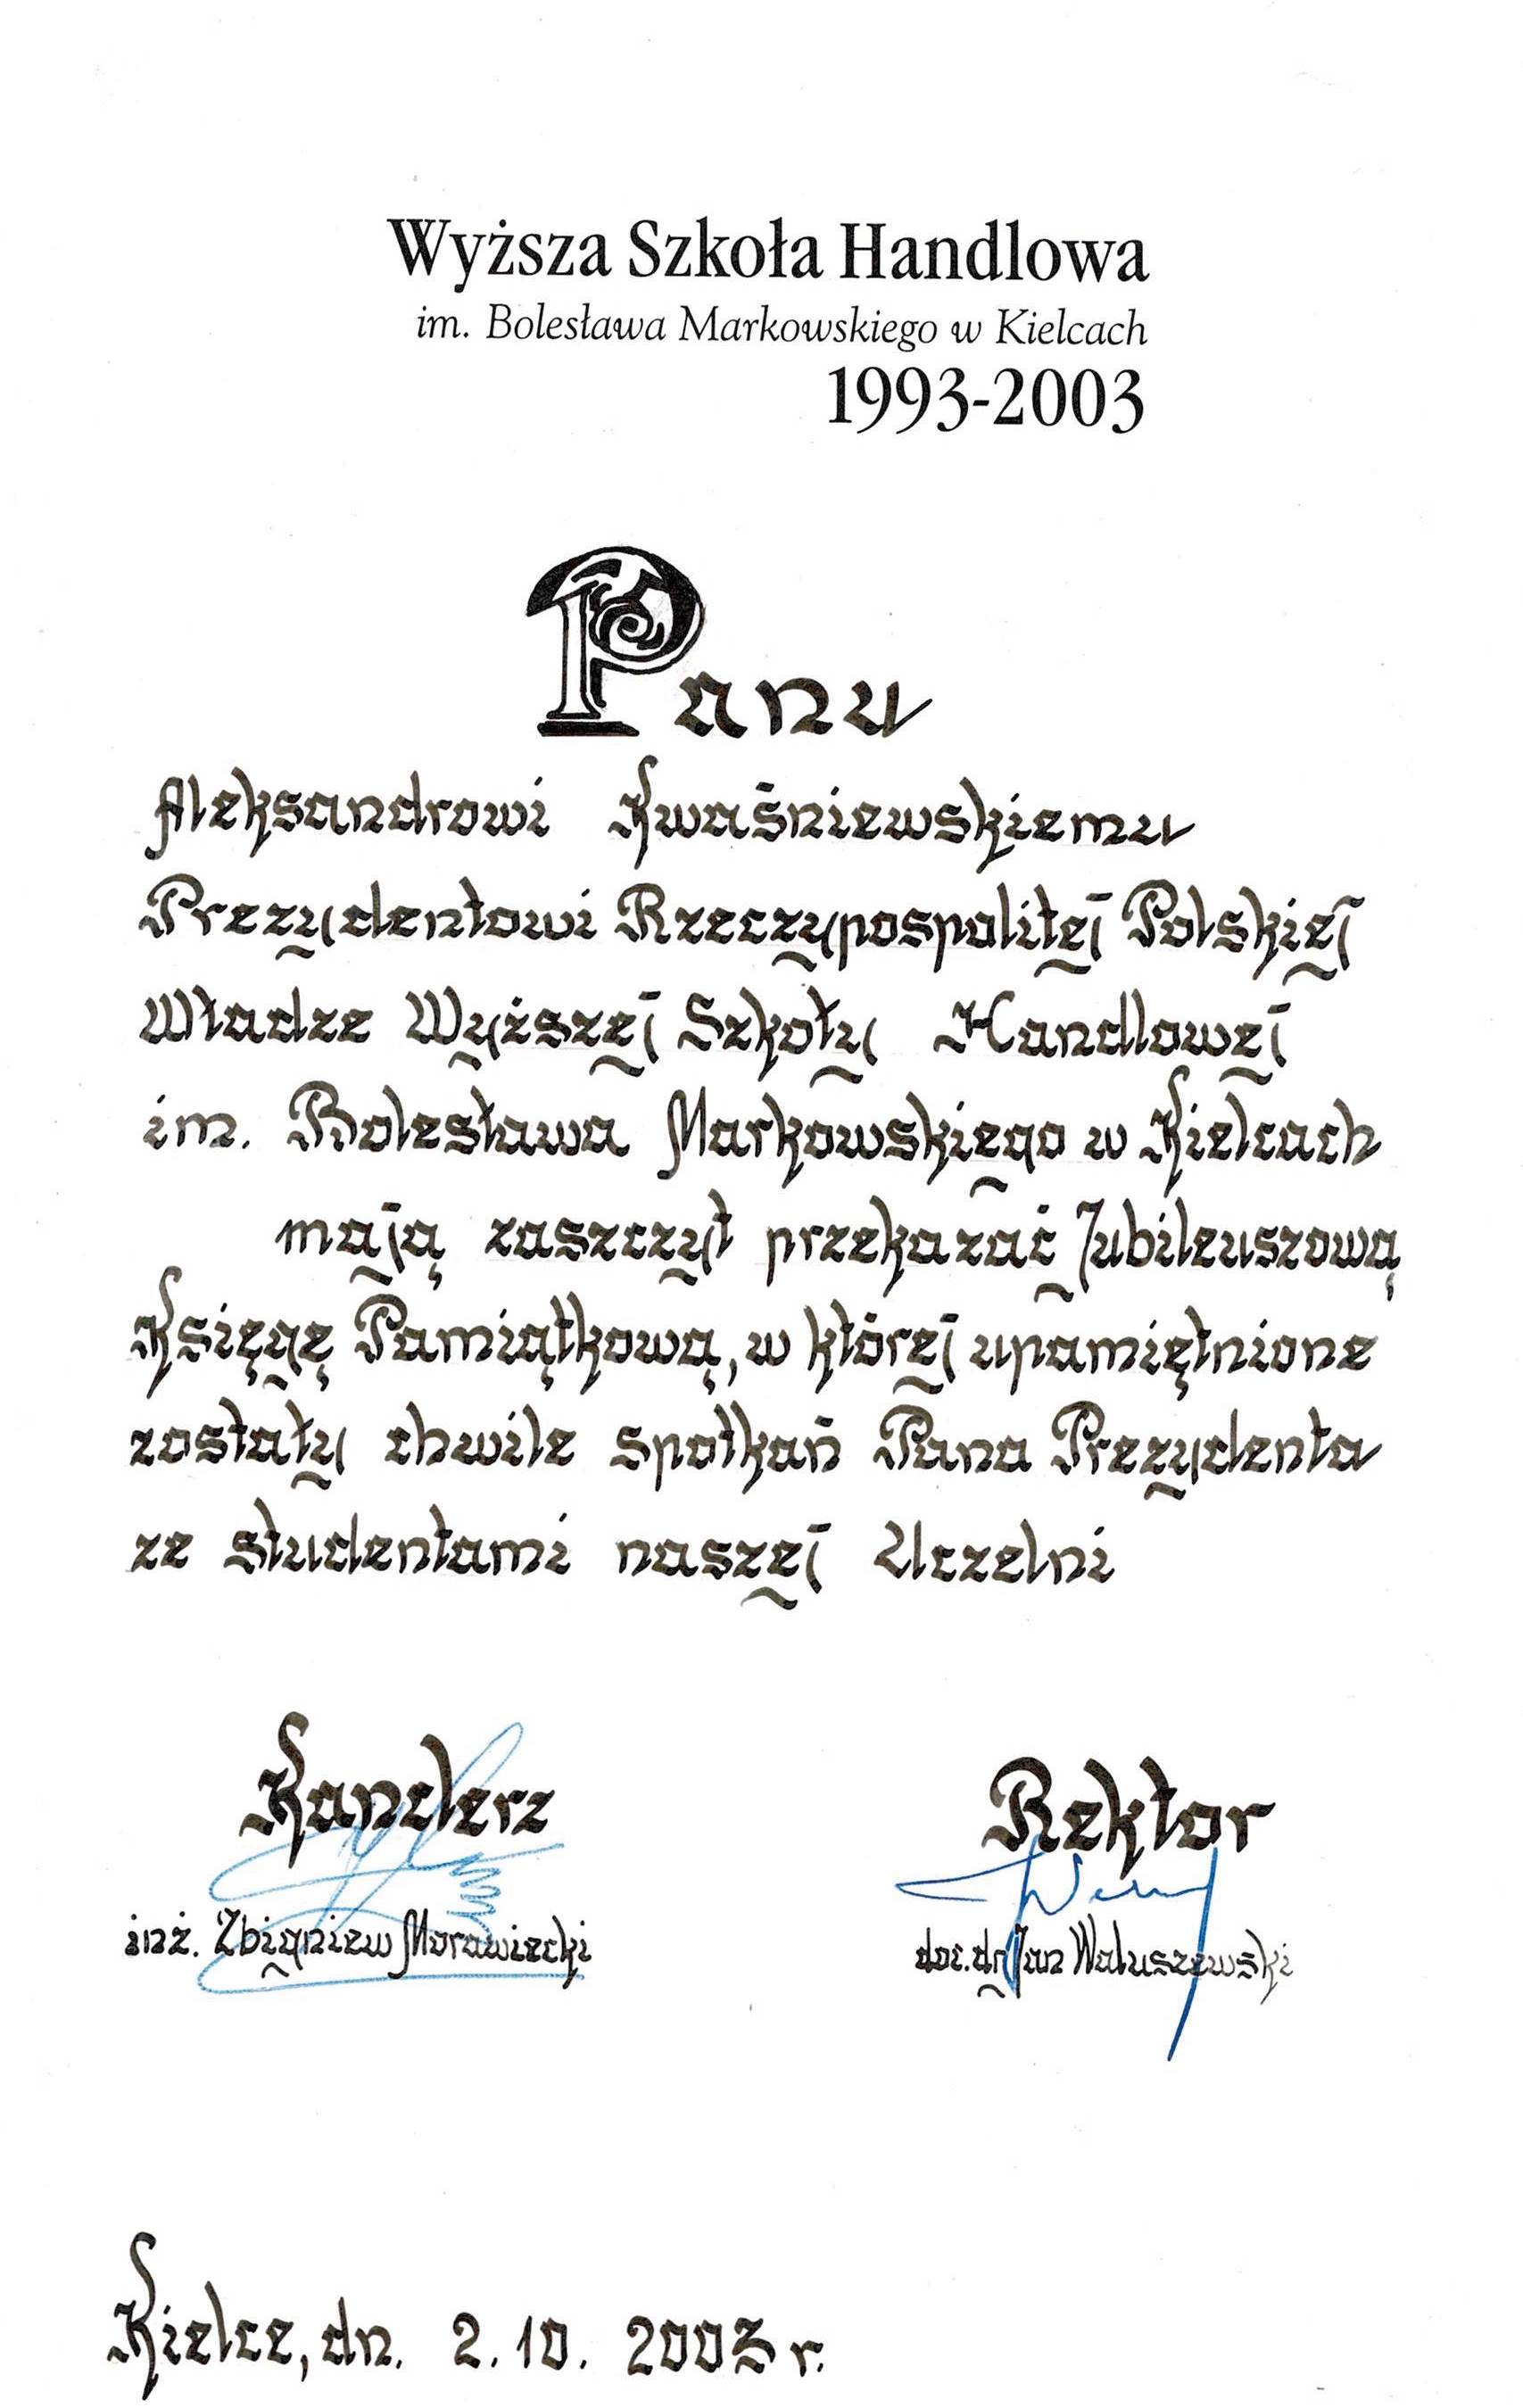 Wyższa Szkoła Handlowa
im. Bolesława Markowskiego w Kielcach
1993-2003
Panu
Aleksandrowi Kwaśniewskiemu
Prezydentowi Rzeczypospolitej Polskiej
Władze Wyższej Szkoły Handlowej
im. Bolesława Markowskiego w Kielcach
mają zaszczyt przekazać Jubileuszową
Księgę Pamiątkową, w której upamiętnione
zostały chwile spotkań Pana Prezydenta
ze studentami naszej Uczelni
Kanclerz
Rektor
inż. Zbigniew Morawiecki
doc. dr Jan Waluszewski
Kielce, dn. 2.10.2003 r.